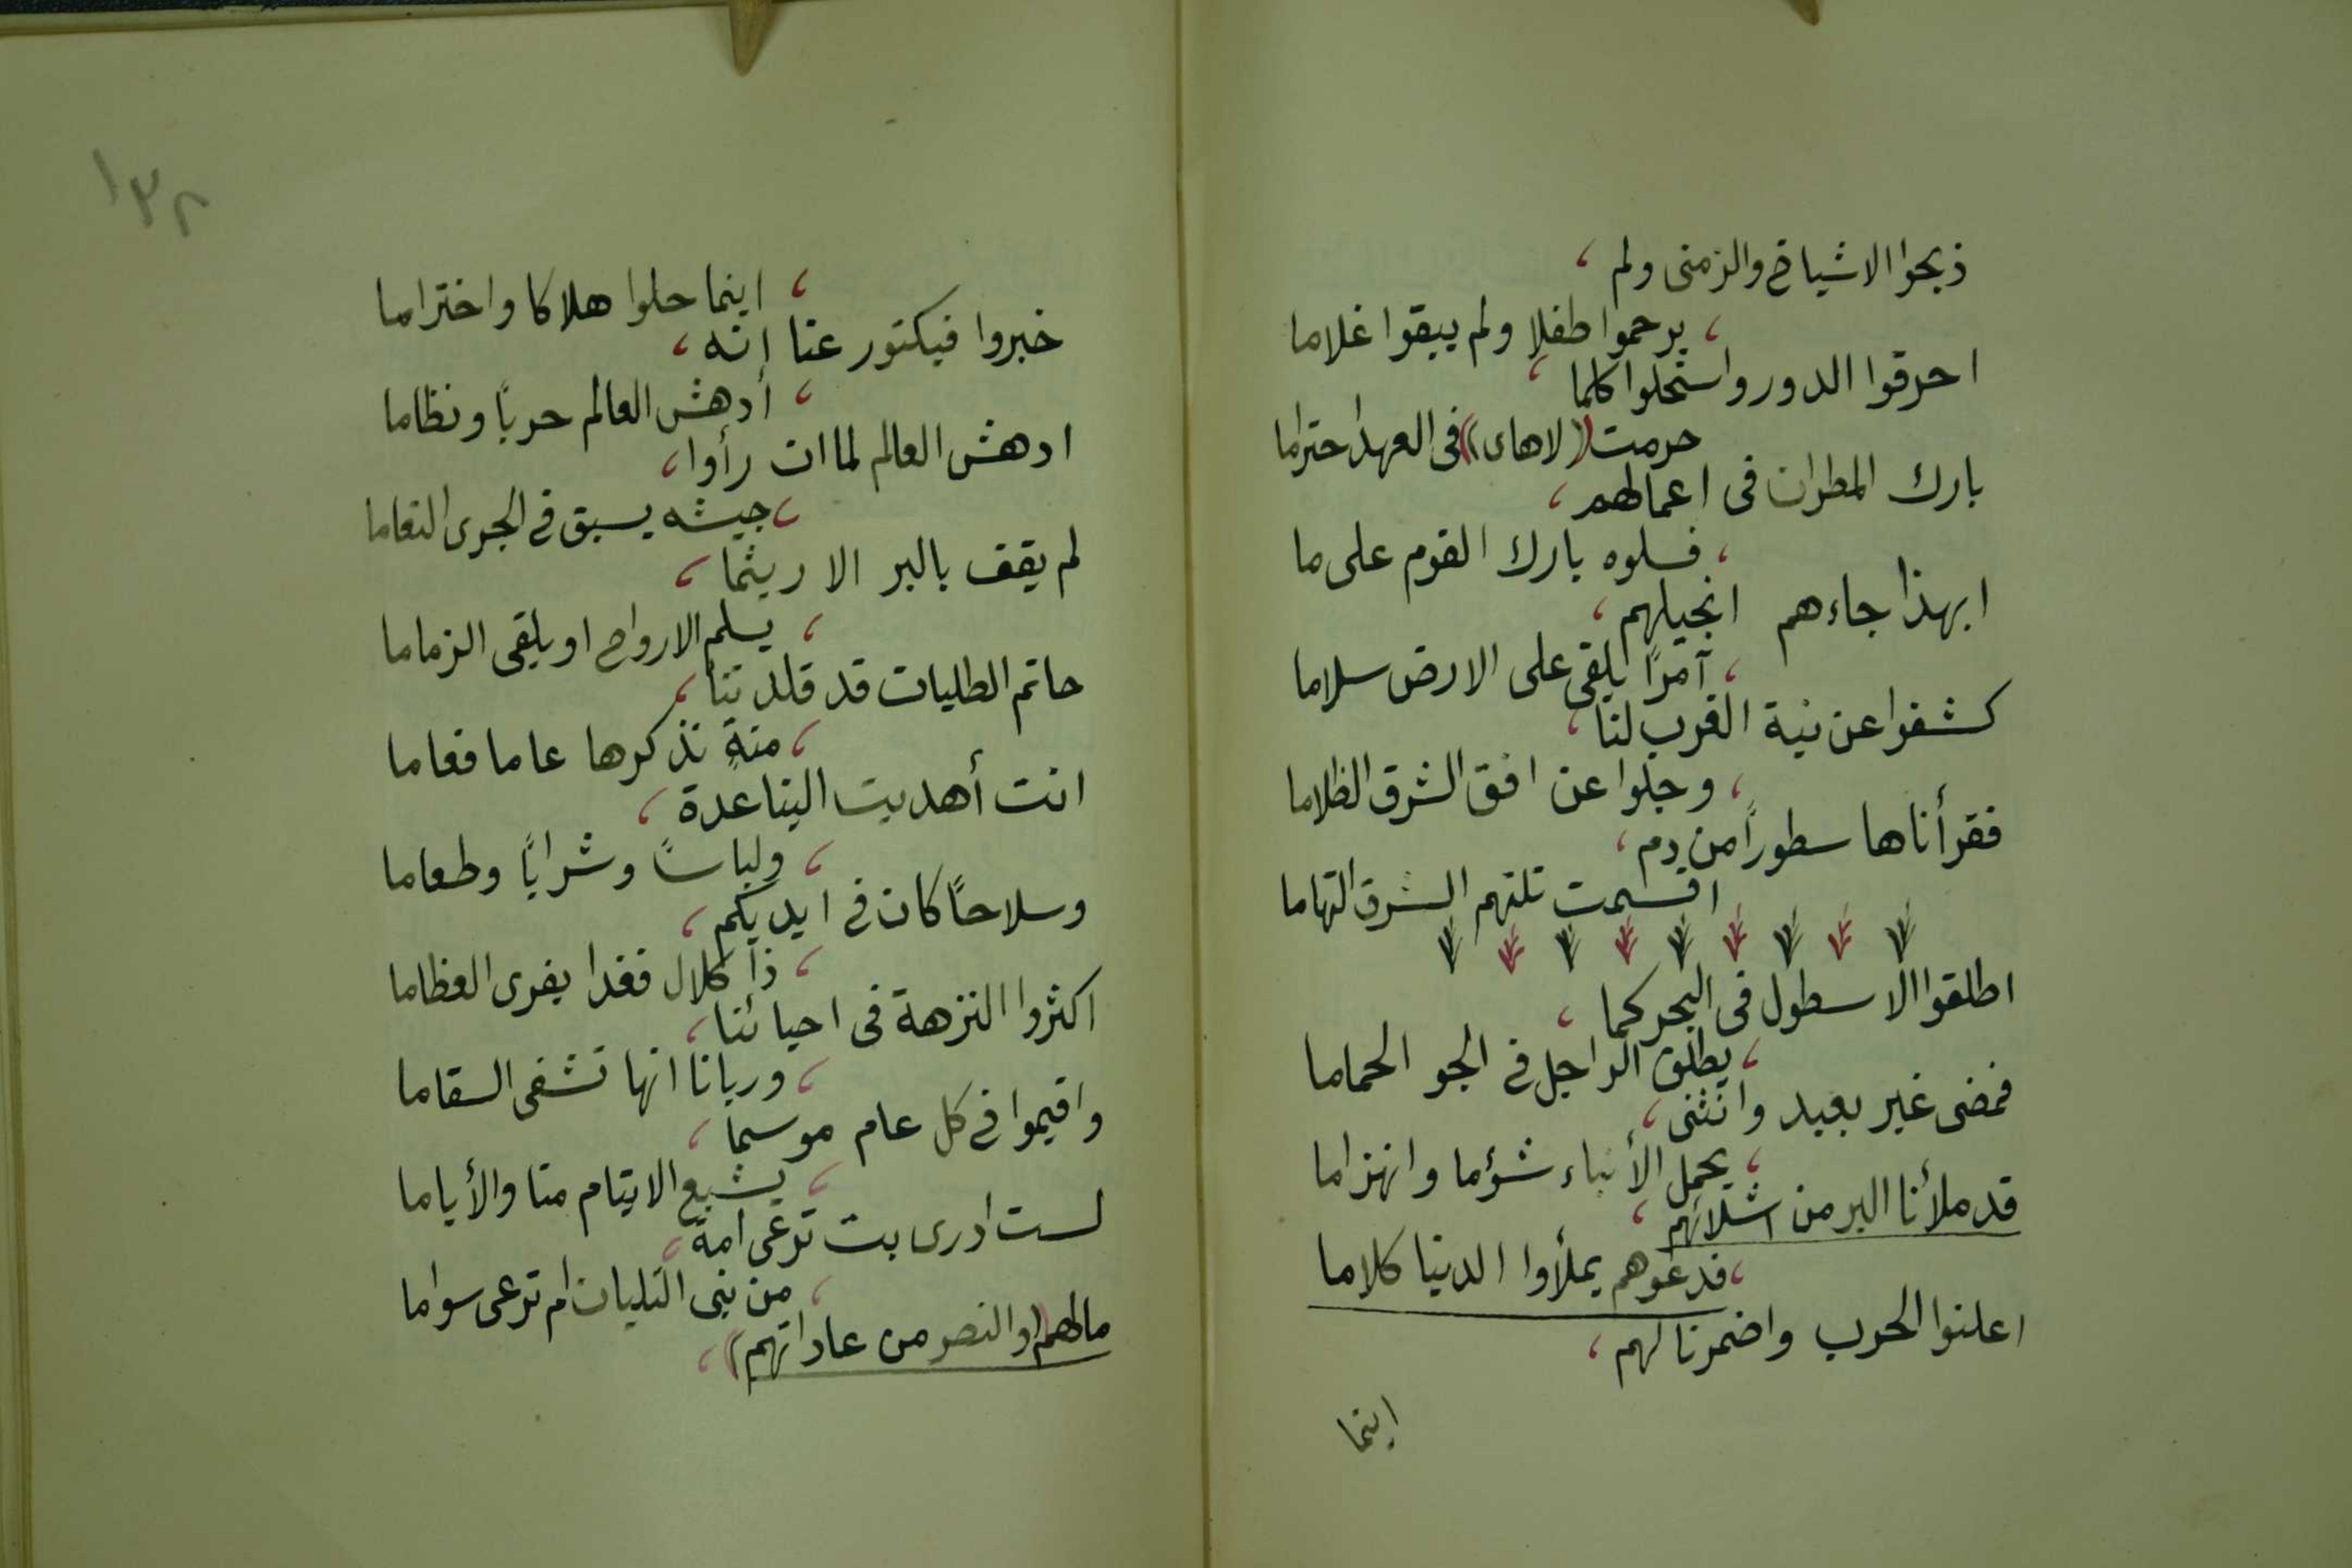 ذبحوا الاشياخ والزمنى ولم ،
، يرحموا طفلا ولم يبقوا غلاما
احرقوا الدور واستحلوا كلما ،
حرمت ((لاهاى)) فى العهد احتراما
بارك المطران فى اعمالهم ،
، فسلوه بارك القوم على ما
ابهذا جاءهم انجيلهم ،
، آمرًا يلقى على الارض سلاما
كشفوا عن نية الغرب لنا ،
، وجلوا عن افق الشرق الظلاما
فقرأناها سطورًا من دم ،
اقسمت تلتهم الشرق التهاما
اطلقوا الاسطول فى البحر كما ،
، يطلق الراجل في الجو الحماما
فمضى غير بعيد وانثنى ،
، يحمل الأنباء شؤما وانهزاما
قد ملأنا البر من اشلائهم ،
، فدعوهم يملأوا الدنيا كلاما
اعلنوا الحرب واضمرنا لهم ،
اينما
١٣٨
، اينما حلوا هلاكا واختراما
خبروا فيكتور عنا انه ،
، أدهش العالم حربًا ونظاما
ادهش العالم لما ان رأوا ،
، جيشه يسبق في الجرى النعاما
لم يقف بالبر الا ريثما ،
، يسلم الارواح او يلقى الزماما
حاتم الطليان قد قلدتنا ،
، منةٍ نذكرها عاما فعاما
انت أهديت الينا عدة ،
، ولباسًا وشرابًا وطعاما
وسلاحًا كان في ايديكم ،
، ذا كلال فغدا يفرى العظاما
اكثروا النزهة فى احيائنا ،
، وربانا انها تشفى السقاما
واقيموا في كل عام موسما ،
، يشبع الايتام منا والأياما
لست ادرى بت ترعى امة ،
، من بنى التليان ام ترعى سواما
مالهم (والنصر من عاداتهم) ،